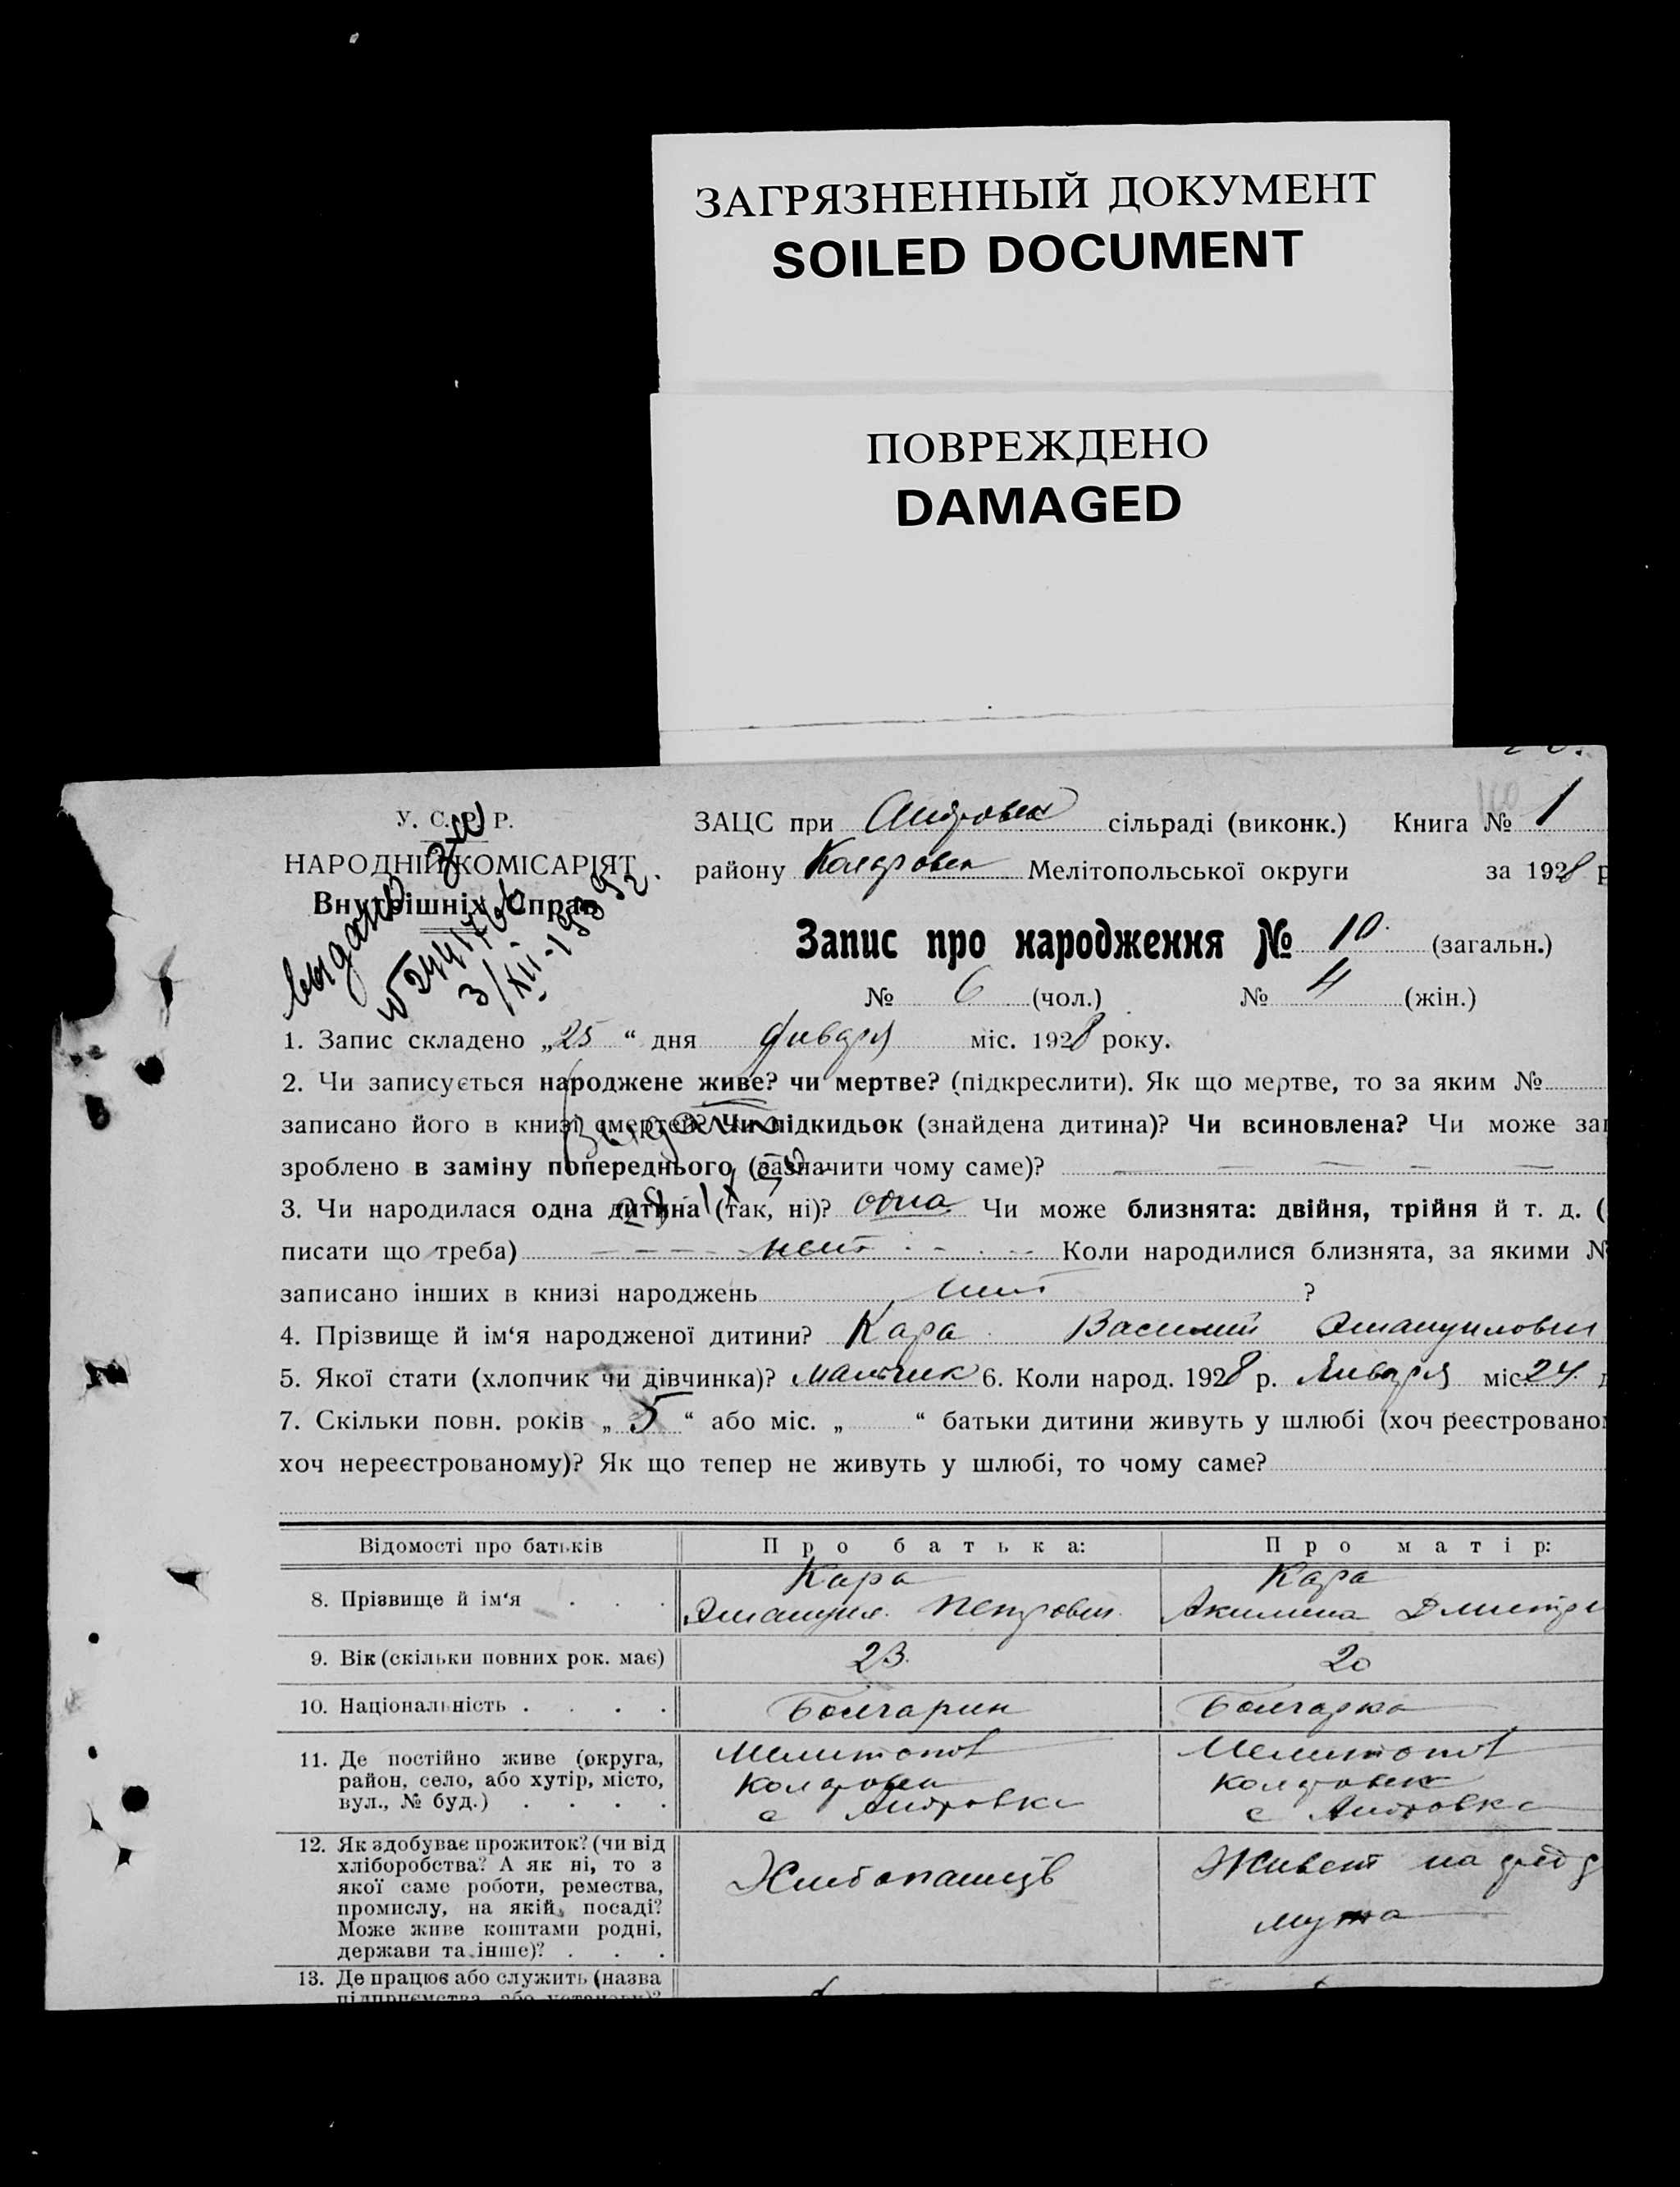 ЗАГРЯЗНЕННЫЙ ДОКУМЕНТ
SOILED DOCUMENT
ПОВРЕЖДЕНО
DAMAGED
У. С. Р. Р.
НАРОДНІЙ КОМІСАРІЯТ
Внутрішніх Справ
выдано
3/XII-1939 г.
ЗАЦС при Андровск сільраді (виконк.) Книга № 1
району Коларовск Мелітопольської округи за 1928 р
Запис про народження № 10 (загальн.)
№ 6 (чол.) № 4 (жін.)
1. Запис складено „25“ дня Января міс. 1928 року.
2. Чи записується народжене живе? чи мертве? (підкреслити). Як що мертве, то за яким №
записано його в книзі смертей? Чи підкидьок (знайдена дитина)? Чи всиновлена? Чи може за
зроблено в заміну попереднього (зазначити чому саме)?
3. Чи народилася одна дитина (так, ні)? одна Чи може близнята: двійня, трійня й т. д. (
писати що треба) нет Коли народилися близнята, за якими №
записано інших в книзі народжень нет ?
4. Прізвище й ім‘я народженої дитини? Кара Василий Эмануилович
5. Якої стати (хлопчик чи дівчинка)? мальчик 6. Коли народ. 1928 р. Января міс. 24
7. Скільки повн. років „5“ або міс. „ “ батьки дитини живуть у шлюбі (хоч реєстровано
хоч нереєстрованому)? Як що тепер не живуть у шлюбі, то чому саме?
Відомості про батьків Про батька: Про матір:
8. Прізвище й ім‘я Кара Эмануил Петрович Кара Акилина Дмитри
9. Вік (скільки повних рок. має) 23 20
10. Національність Болгарин Болгарка
11. Де постійно живе (округа, Мелитопол Мелитопол
район, село, або хутір, місто, Коларовск Коларовск
вул., № буд.) с Андровка с Андровка
12. Як здобуває прожиток? (чи від
хліборобства? А як ні, то з Хлебопашеств Живет на сред
якої саме роботи, ремества,
промислу, на якій посаді? мужа
Може живе коштами родні,
держави та інше)?
13. Де працює або служить (назва
підприємства або установи)?